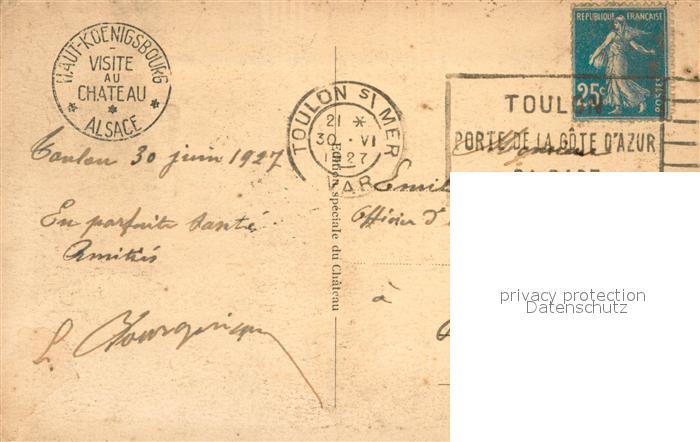 HAUT-KOENIGSBOURG
VISITE
AU
CHATEAU
* ALSACE *
Toulon 30 juin 1927
En parfaite santé
Amitiés
TOULON S! MER
21 *
30 · VI
1927
VAR
Edition spéciale du Château
REPUBLIQUE FRANÇAISE
25c
POSTES
TOULON
PORTE DE LA CÔTE D'AZUR
SA RADE
Monsieur
Emil
Officier d'
à
privacy protection
Datenschutz